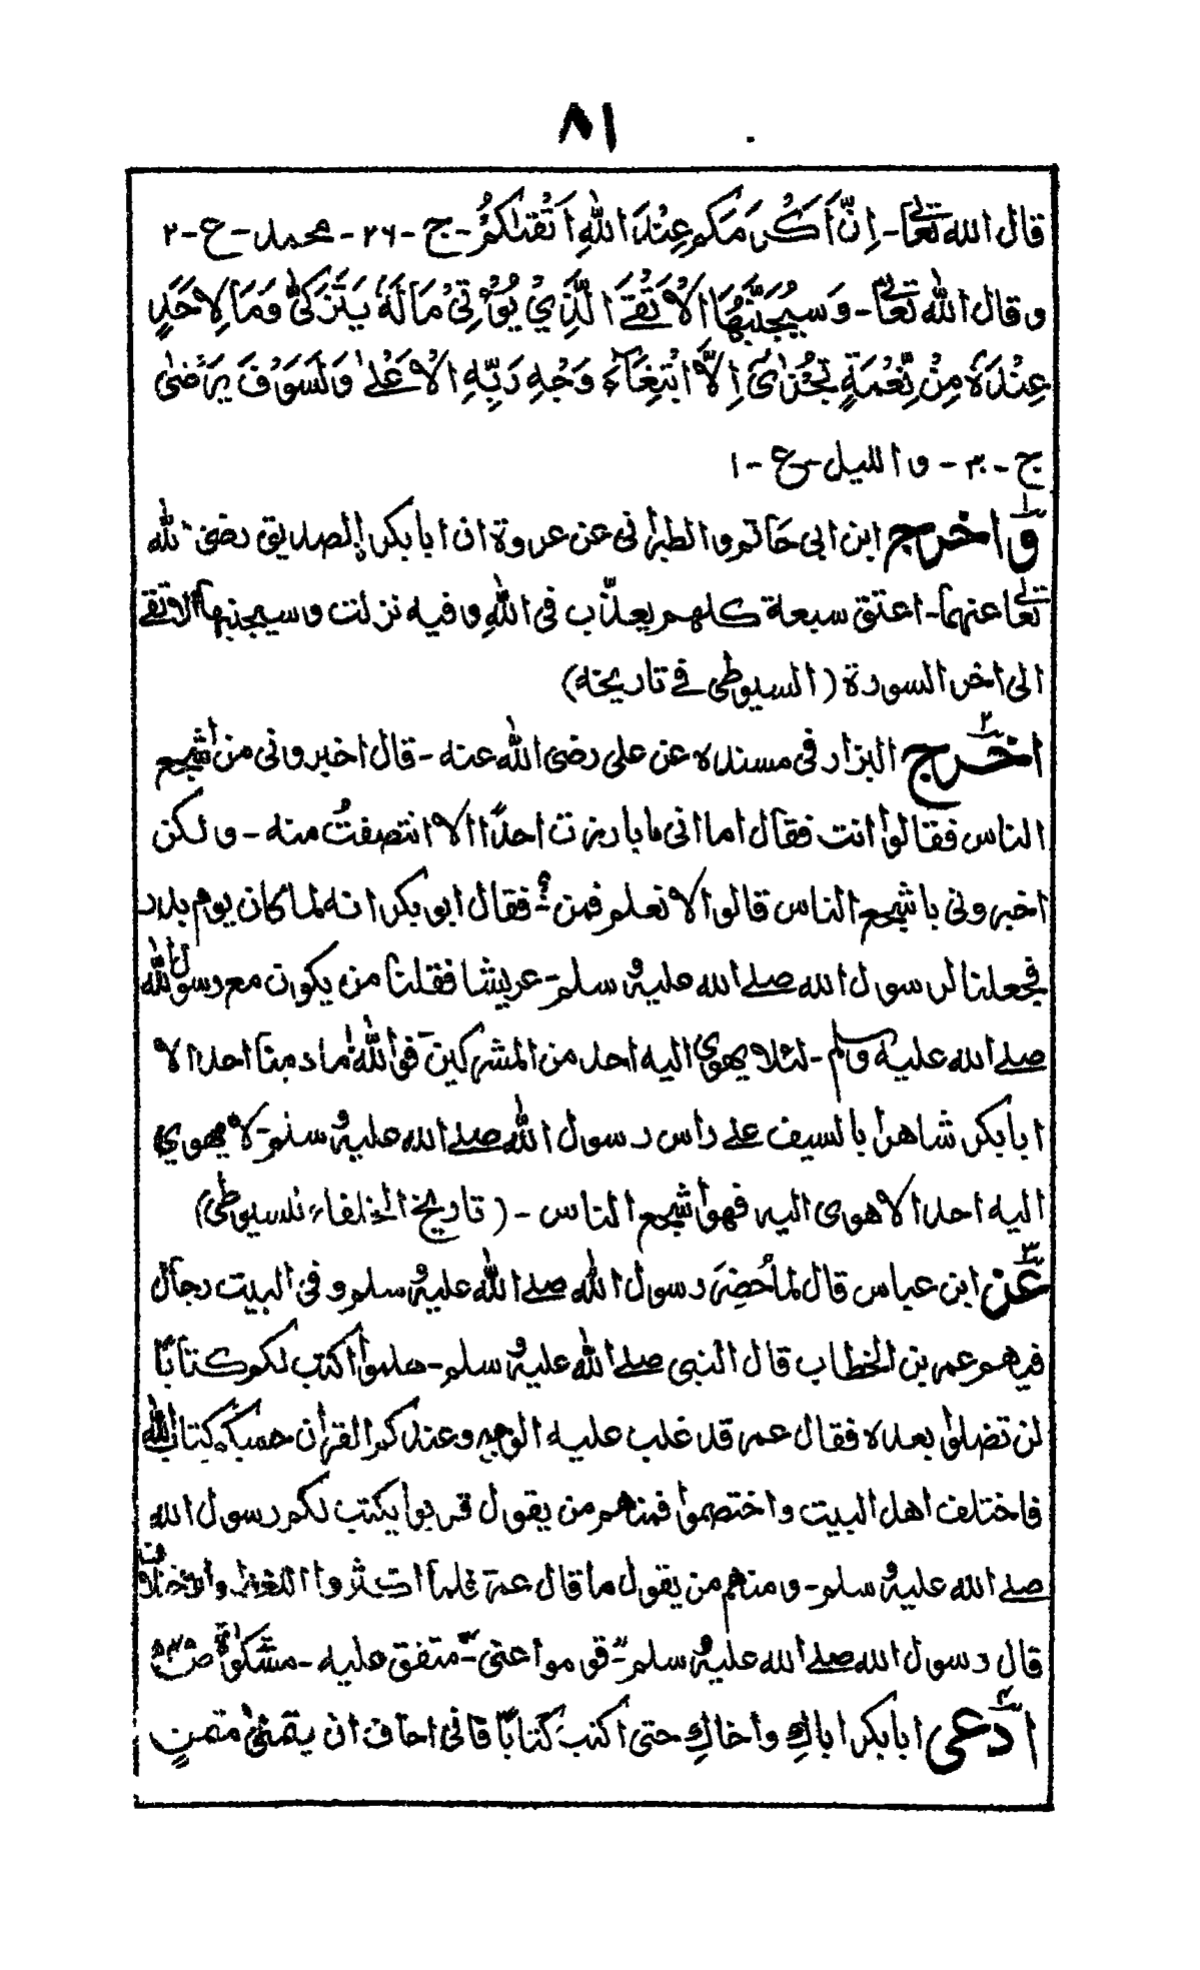 ٨١
قال الله تعالى - اِنَّ اَكْرَمَكُم عِنْدَ اللهِ اَتْقٰكُمْ - ج - ٢٦ - محمد - ع - ٢
و قال الله تعالى - وَسَيُجَنَّبُهَا الْاَتْقَى الَّذِيْ يُؤْتِيْ مَالَهٗ يَتَزَكّٰى وَمَا لِاَحَدٍ
عِنْدَهٗ مِنْ نِّعْمَةٍ تُجْزٰى اِلَّا ابْتِغَآءَ وَجْهِ رَبِّهِ الْاَعْلٰى وَلَسَوْفَ يَرْضٰى
ج - ٣٠ - و الليل - ع - ١
و اخرج ابن ابى حاتم و الطبرانى عن عروة ان ابا بكر الصديق رضى الله
تعالى عنهما - اعتق سبعة كلهم يعذّب فى اللهِ و فيه نزلت و سيجنبها الاتقى
الى اخر السورة (السيوطى فى تاريخه)
٢
اخرج البزار فى مسنده عن على رضى الله عنه - قال اخبرونى من اشجع
الناس فقالوا انت فقال اما انى ما بارزت احدًا الا انتصفتُ منه - و لكن
اخبرونى باشجع الناس قالوا لا نعلم فمن؟ - فقال ابو بكر انه لما كان يوم بدر
فجعلنا لرسول الله صلى الله عليه و سلم - عريشا فقلنا من يكون مع رسول الله
صلى الله عليه و سلم - لئلا يهوى اليه احد من المشركين - فو الله ما دمنا احد الا
ابا بكر شاهرا بالسيف على راس رسول الله صلى الله عليه و سلم - لا يهوى
اليه احد الا هوى اليه فهو اشجع الناس - (تاريخ الخلفاء للسيوطى)
٣
عن ابن عباس قال لما حُضِرَ رسول الله صلى الله عليه و سلم و فى البيت رجال
فيهم عمر بن الخطاب قال النبى صلى الله عليه و سلم - هلموا اكتب لكم كتابًا
لن تضلوا بعده فقال عمر قد غلب عليه الوجع و عندكم القران حسبكم كتاب الله
فاختلف اهل البيت و اختصموا فمنهم من يقول قربوا يكتب لكم رسول الله
صلى الله عليه و سلم - و منهم من يقول ما قال عمر فلما اكثروا اللغط و الاختلاف
قال رسول الله صلى الله عليه و سلم - قوموا عنى - متفق عليه - مشكوة
ادعى ابا بكر اباكِ و اخاكِ حتى اكتب كتابًا فانى اخاف ان يتمنى متمنٍ